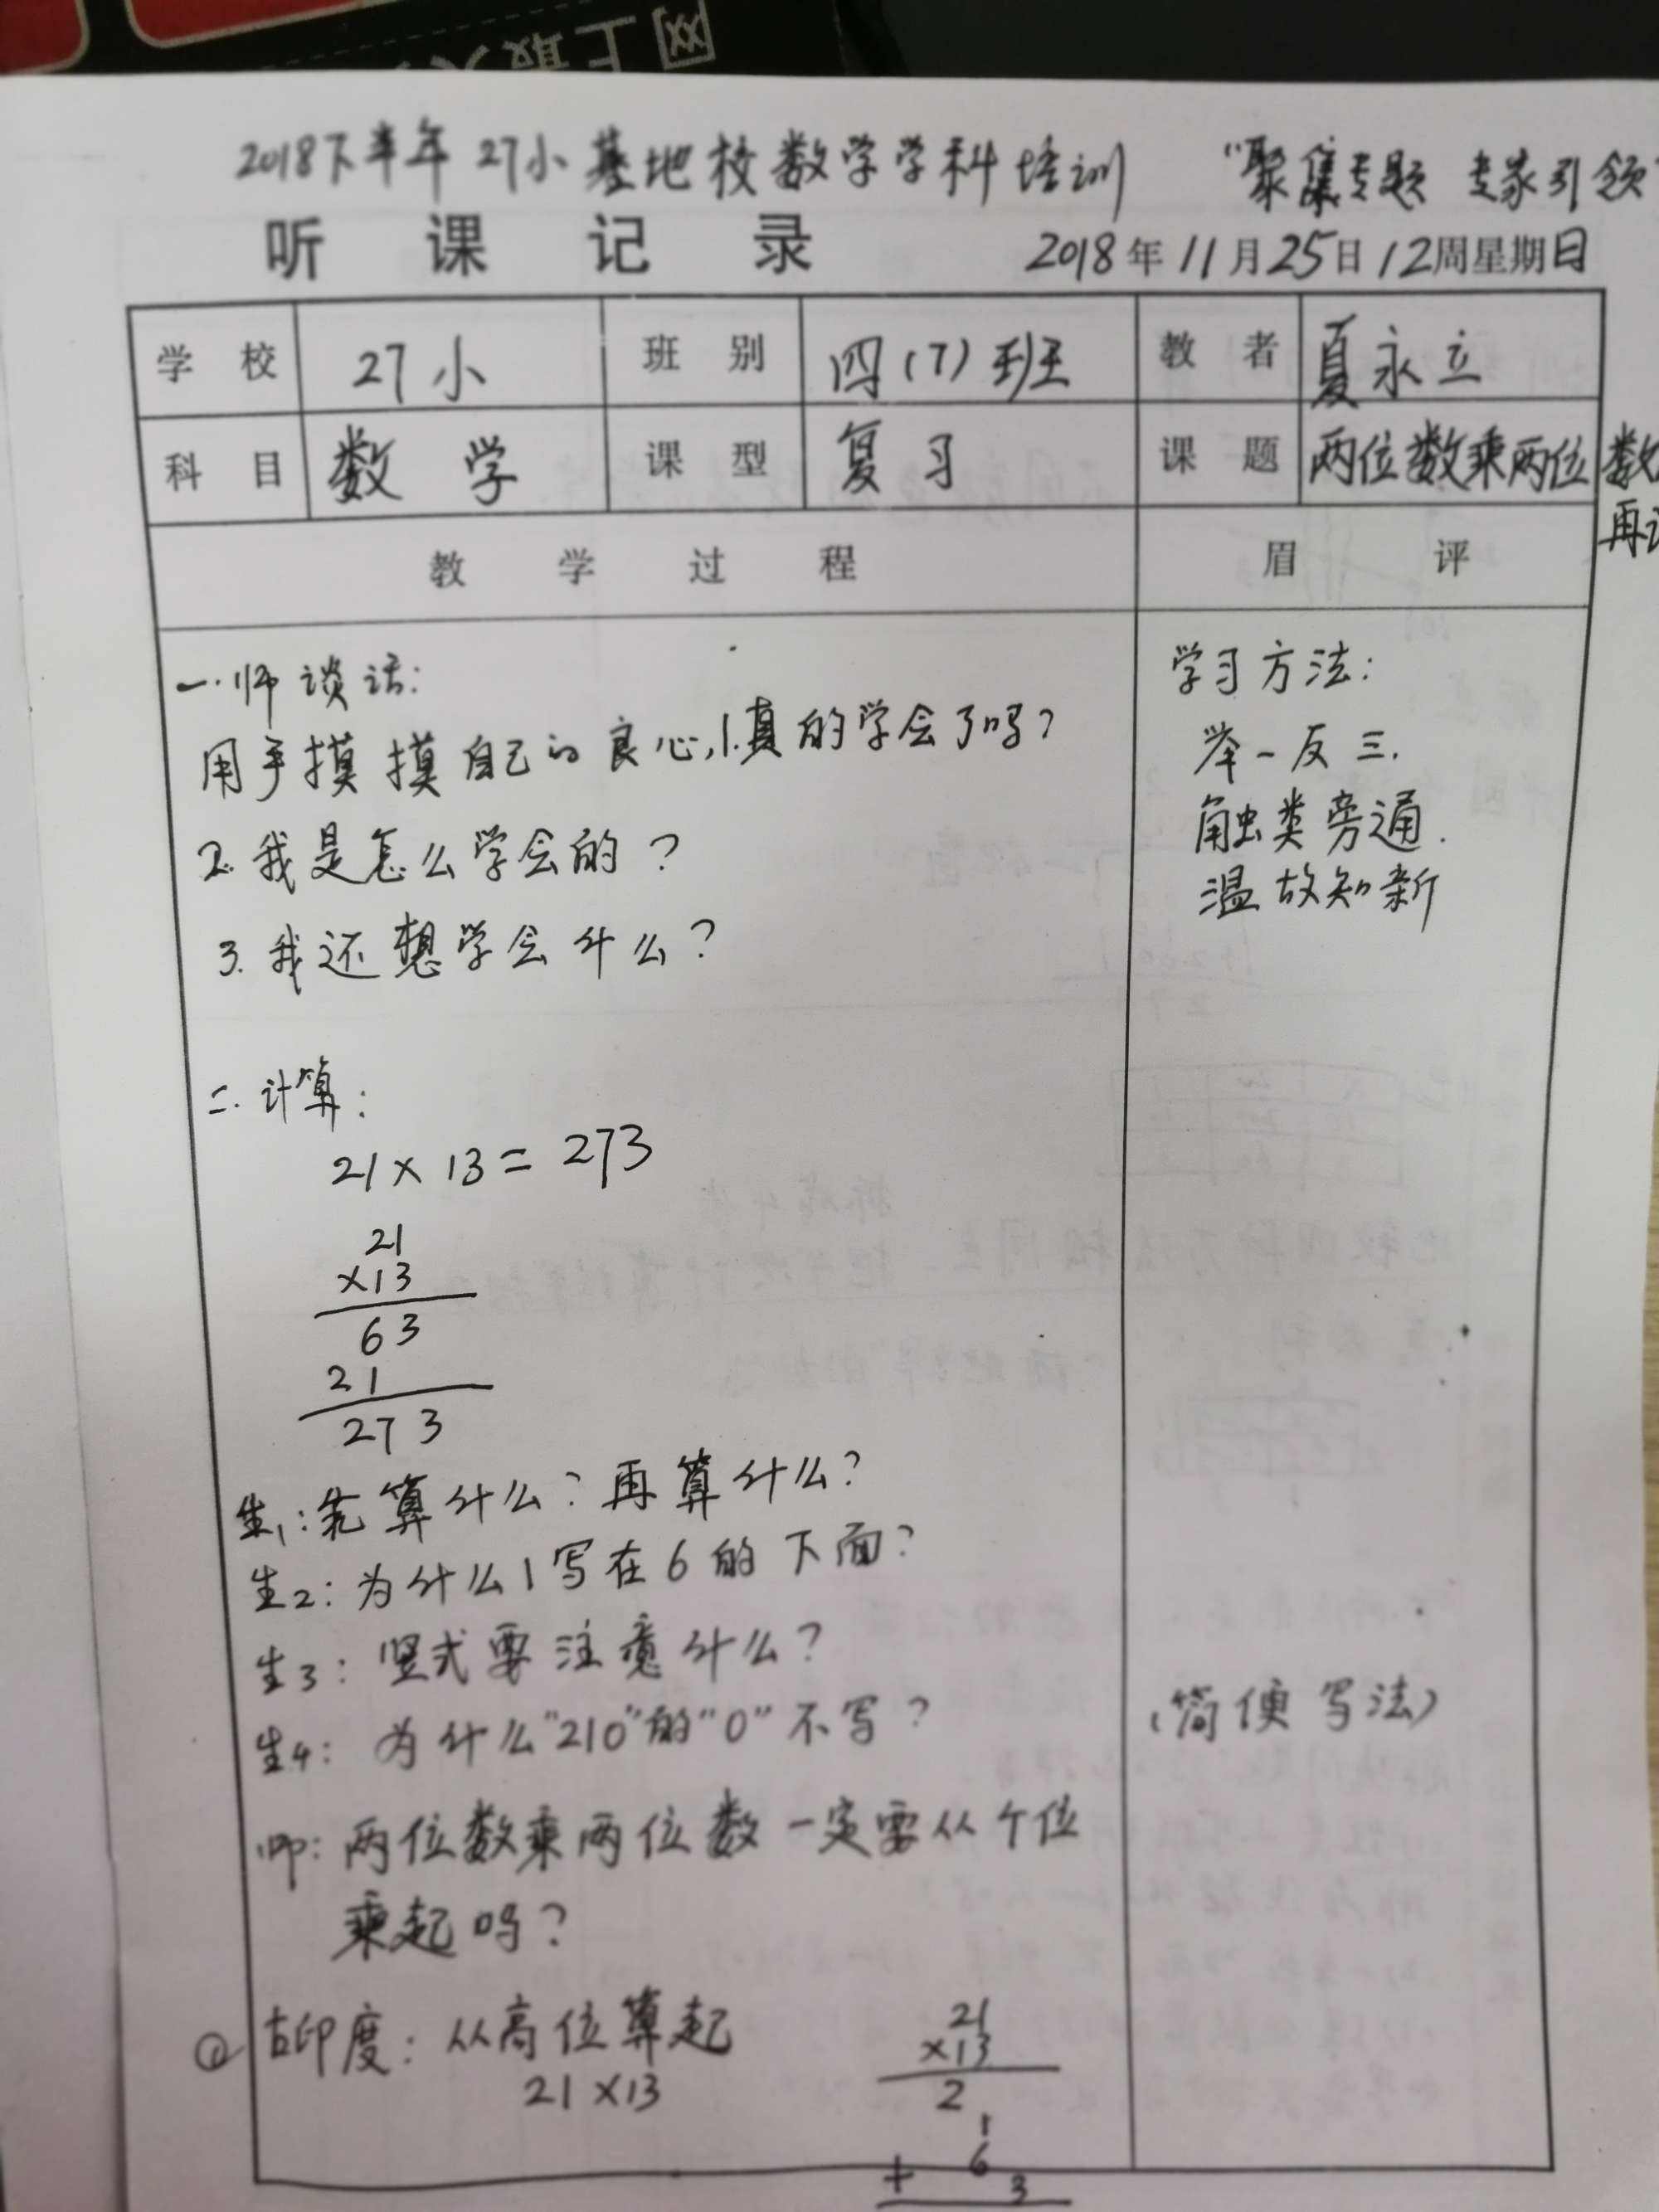 网上最
2018下半年 27小基地校数学学科培训 “聚集专题 专家引领”
听课记录 2018年11月25日12周星期日
学校 27小 班别 四(7)班 教者 夏永立
科目 数学 课型 复习 课题 两位数乘两位数
再
教学过程 眉评
一.师谈话:
用手摸摸自己的良心,1.真的学会了吗?
2.我是怎么学会的?
3.我还想学会什么?
学习方法:
举一反三.
触类旁通.
温故知新
二.计算:
21×13=273
21
×13
63
21
273
生1:先算什么?再算什么?
生2:为什么1写在6的下面?
生3:竖式要注意什么?
生4:为什么“210”的“0”不写? (简便写法)
师:两位数乘两位数一定要从个位
乘起吗?
① 古印度:从高位算起
21×13
21
×13
2
1
6
+ 3